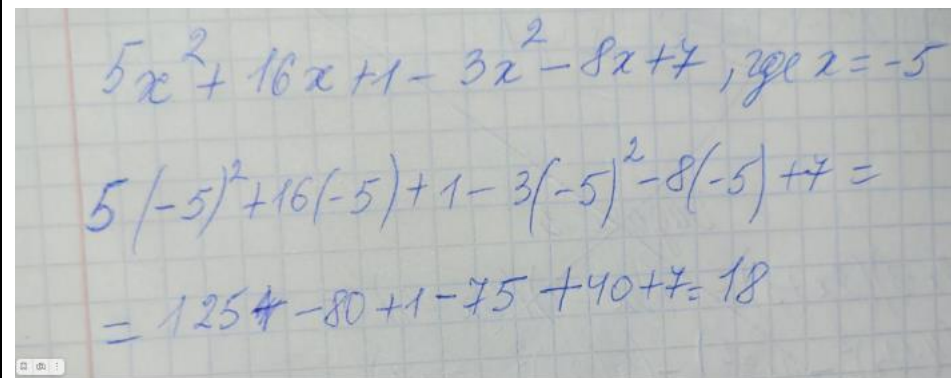 5x² + 16x + 1 - 3x² - 8x + 7, где x = -5
5(-5)² + 16(-5) + 1 - 3(-5)² - 8(-5) + 7 =
= 125 - 80 + 1 - 75 + 40 + 7 = 18